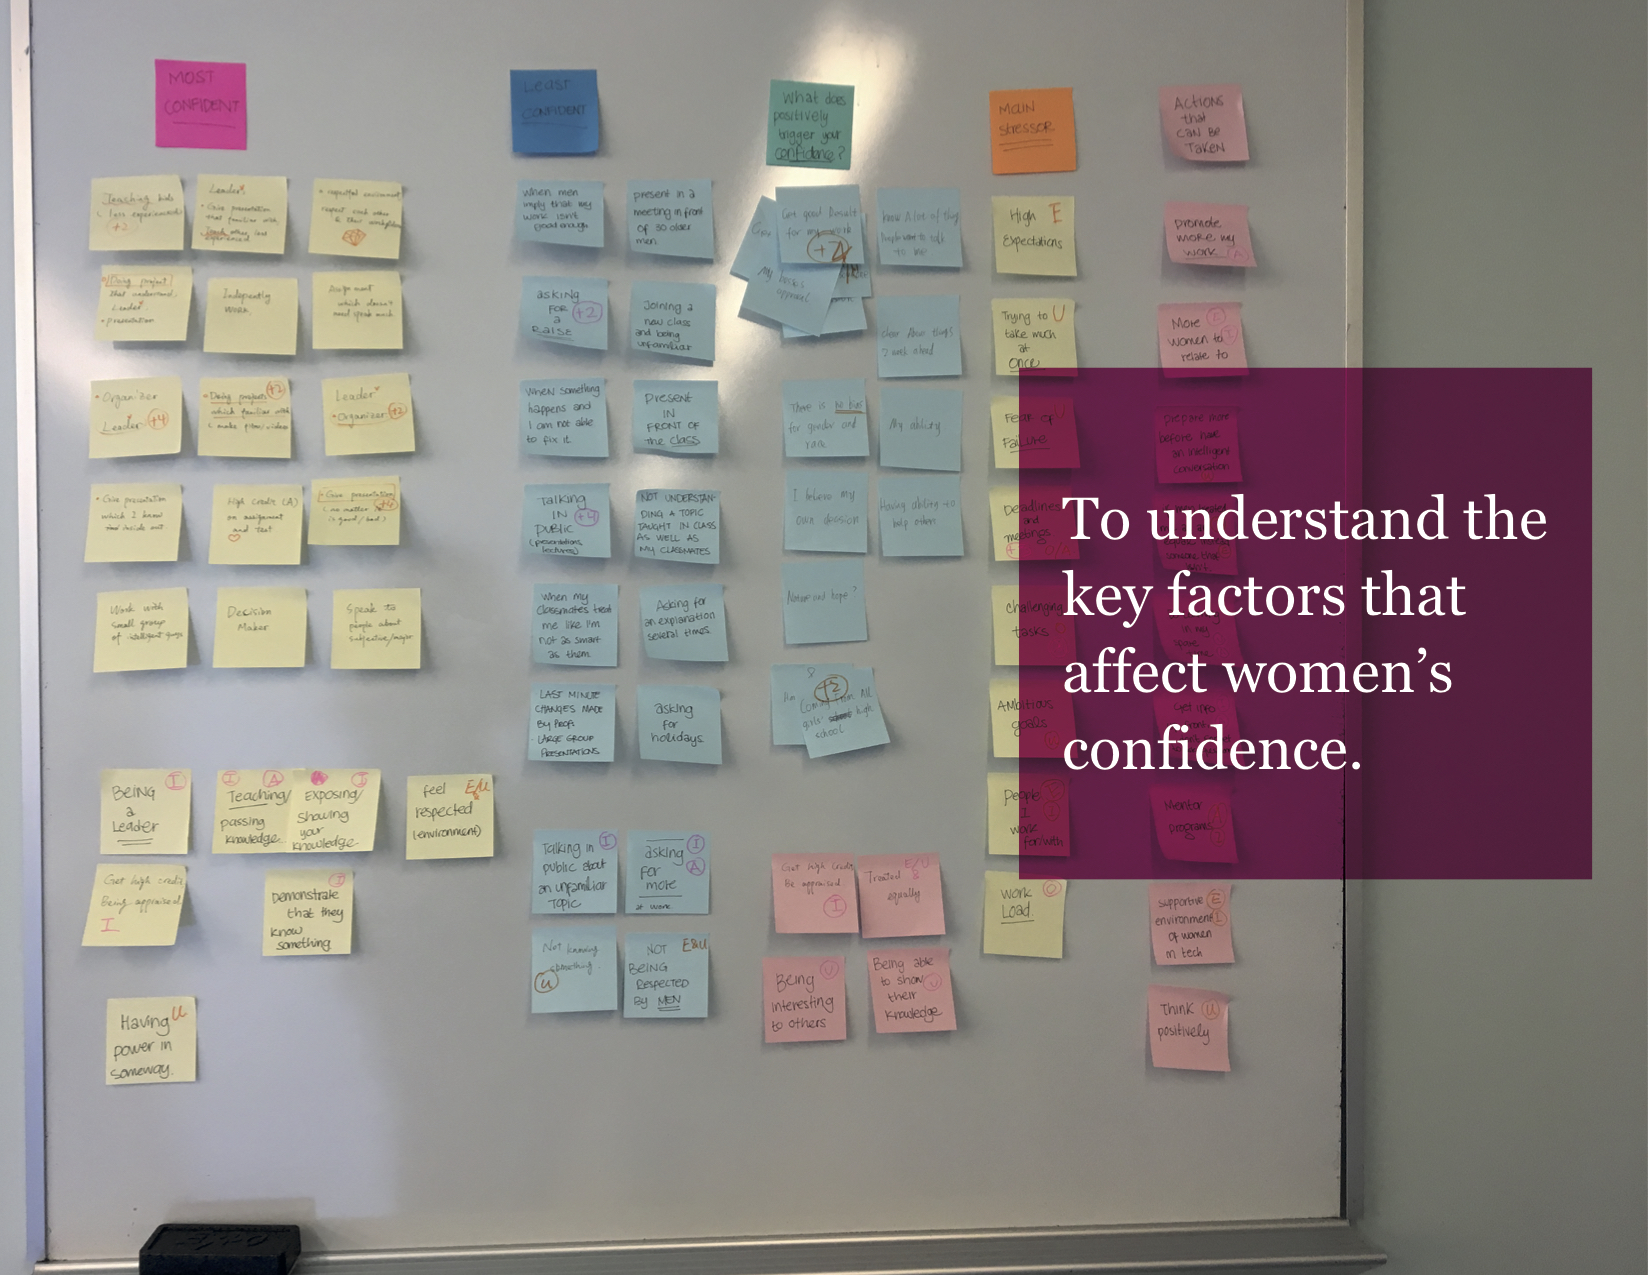 MOST
CONFIDENT
Least
CONFIDENT
What does
positively
trigger your
confidence?
MAIN
stressor
ACTIONS
that
CAN BE
TAKEN
Teaching kids
( less experienced)
+2
Leader
• Give presentation
that familiar with
Teach other, less
experienced
• respectful environment
respect each other
& their workplace
Doing project
that understand,
Leader
• presentation
Indepently
work.
Assignment
which doesn't
need speak much
• Organizer
Leader +4
• Doing projects +2
which familiar with
( make film/video
Leader
• Organizer +2
• Give presentation
which I know
inside out
High credit (A)
on assignment
and test
• Give presentation
+4
(no matter is
is good/bad)
Work with
small group
of intelligent guys
Decision
Maker
Speak to
people about
subjective/major
BeiNG I
a
Leader
I A
Teaching/
passing
knowledge
I
Exposing/
showing
your
knowledge
feel E/U
respected
(environment)
Get high credit
Being appraised
I
I
Demonstrate
that they
know
something
Having U
power in
someway.
When men
imply that my
work isn't
good enough
present in a
meeting in front
of 30 older
men.
asking
FOR +2
a
RAISE
Joining a
new class
and being
unfamiliar
When something
happens and
I am not able
to fix it.
PRESENT
IN
FRONT OF
the class
Talking
IN +4
public
(presentations,
lectures)
NOT UNDERSTAN-
DING A TOPIC
TAUGHT IN CLASS
AS WELL AS
MY CLASSMATES
When my
Classmates treat
me like I'm
not as smart
as them.
Asking for
an explanation
several times.
LAST MINUTE
CHANGES MADE
BY PROF.
• LARGE GROUP
PRESENTATIONS
asking
for
holidays
Talking in I
public about
an unfamiliar
Topic
asking I
For A
more
at work.
Not knowing
something.
U
NOT E&U
BEING
RESPECTED
By MEN
Get good Result
for my work
+2
My boss's
approval
know A lot of thing
People want to talk
to me
clear About things
2 week ahead
There is no bias
for gender and
race
My ability
I believe my
own decision
Having ability to
help others
Nature and hope?
+2
Coming from All
girls' high
school
Get high credit
Be appraised
I
E/U
Treated
equally
Being U
interesting
to others
Being able
to show U
their
knowledge
High E
Expectations
Trying to U
take much
at
once
Fear of U
Failure
Deadlines
and
meetings
challenging
tasks
AMbitious
goals
People
I
work
for/with
work O
LOAD.
promote
MORE my
work (A)
More E
women to I
relate to
prepare more
before have
an intelligent
conversation
someone that
in my
Get info
Mentor
programs
supportive E
environment I
of women
in tech
Think U
positively
To understand the
key factors that
affect women’s
confidence.
EXPO